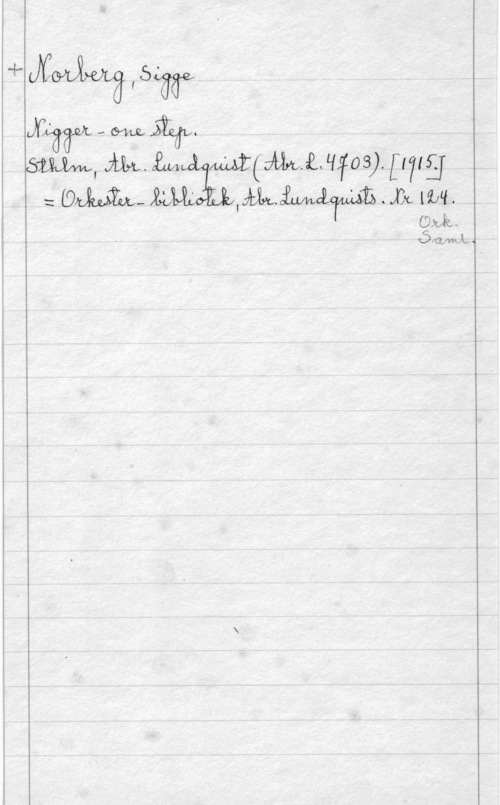 + Norberg, Sigge
Nigger - one step.
Sthlm, Abr. Lundquist (Abr. L. 4703). [1915]
= Orkester-bibliotek, Abr. Lundquists. Nr 124.
Ork.
Saml.